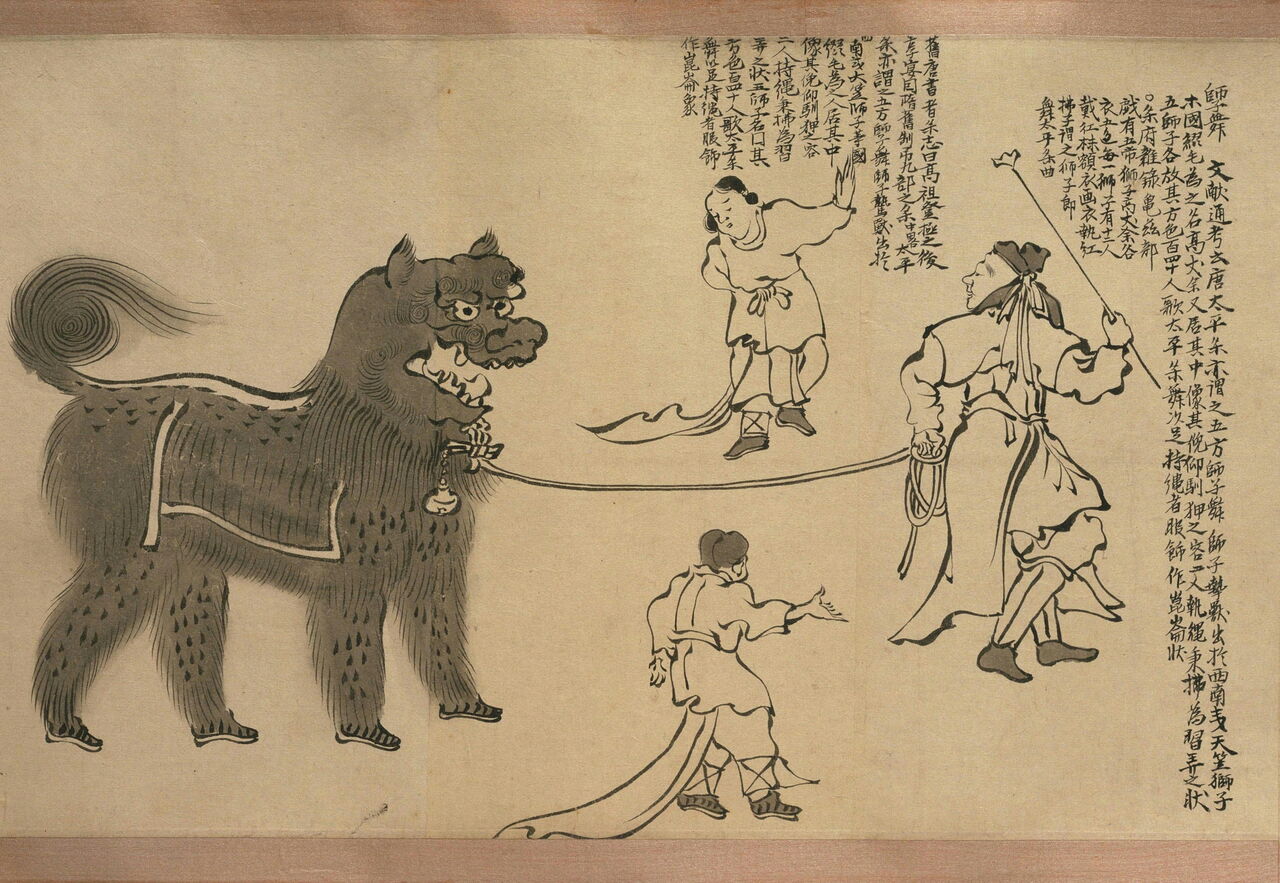 師子舞 文献通考云唐太平楽亦謂之五方師子舞師子摯獣出於西南夷天竺獅子
木國綴毛為之各高丈余又居其中像其俛仰馴狎之容二人執縄秉拂為習弄之状
五師子各放其方色百四十人歌太平楽舞以足持縄者服飾作崑崙状
〇楽府雑録亀茲部
戯有五帝獅子高丈余各
衣五色毎一獅子有十二人
戴紅抹額衣画衣執紅
拂子謂之獅子郎
舞太平楽曲
舊唐書音楽志曰高祖登極之後
享宴因隋舊制用九部之楽中畧太平
楽亦謂之五方師子舞師子鷙獣出於
西南夷天竺師子等國
綴毛為之人居其中
像其俛仰馴狎之容
二人持縄秉拂為習
弄之状五師子各其
方色百四十人歌太平楽
舞以足持縄者服飾
作崑崙象